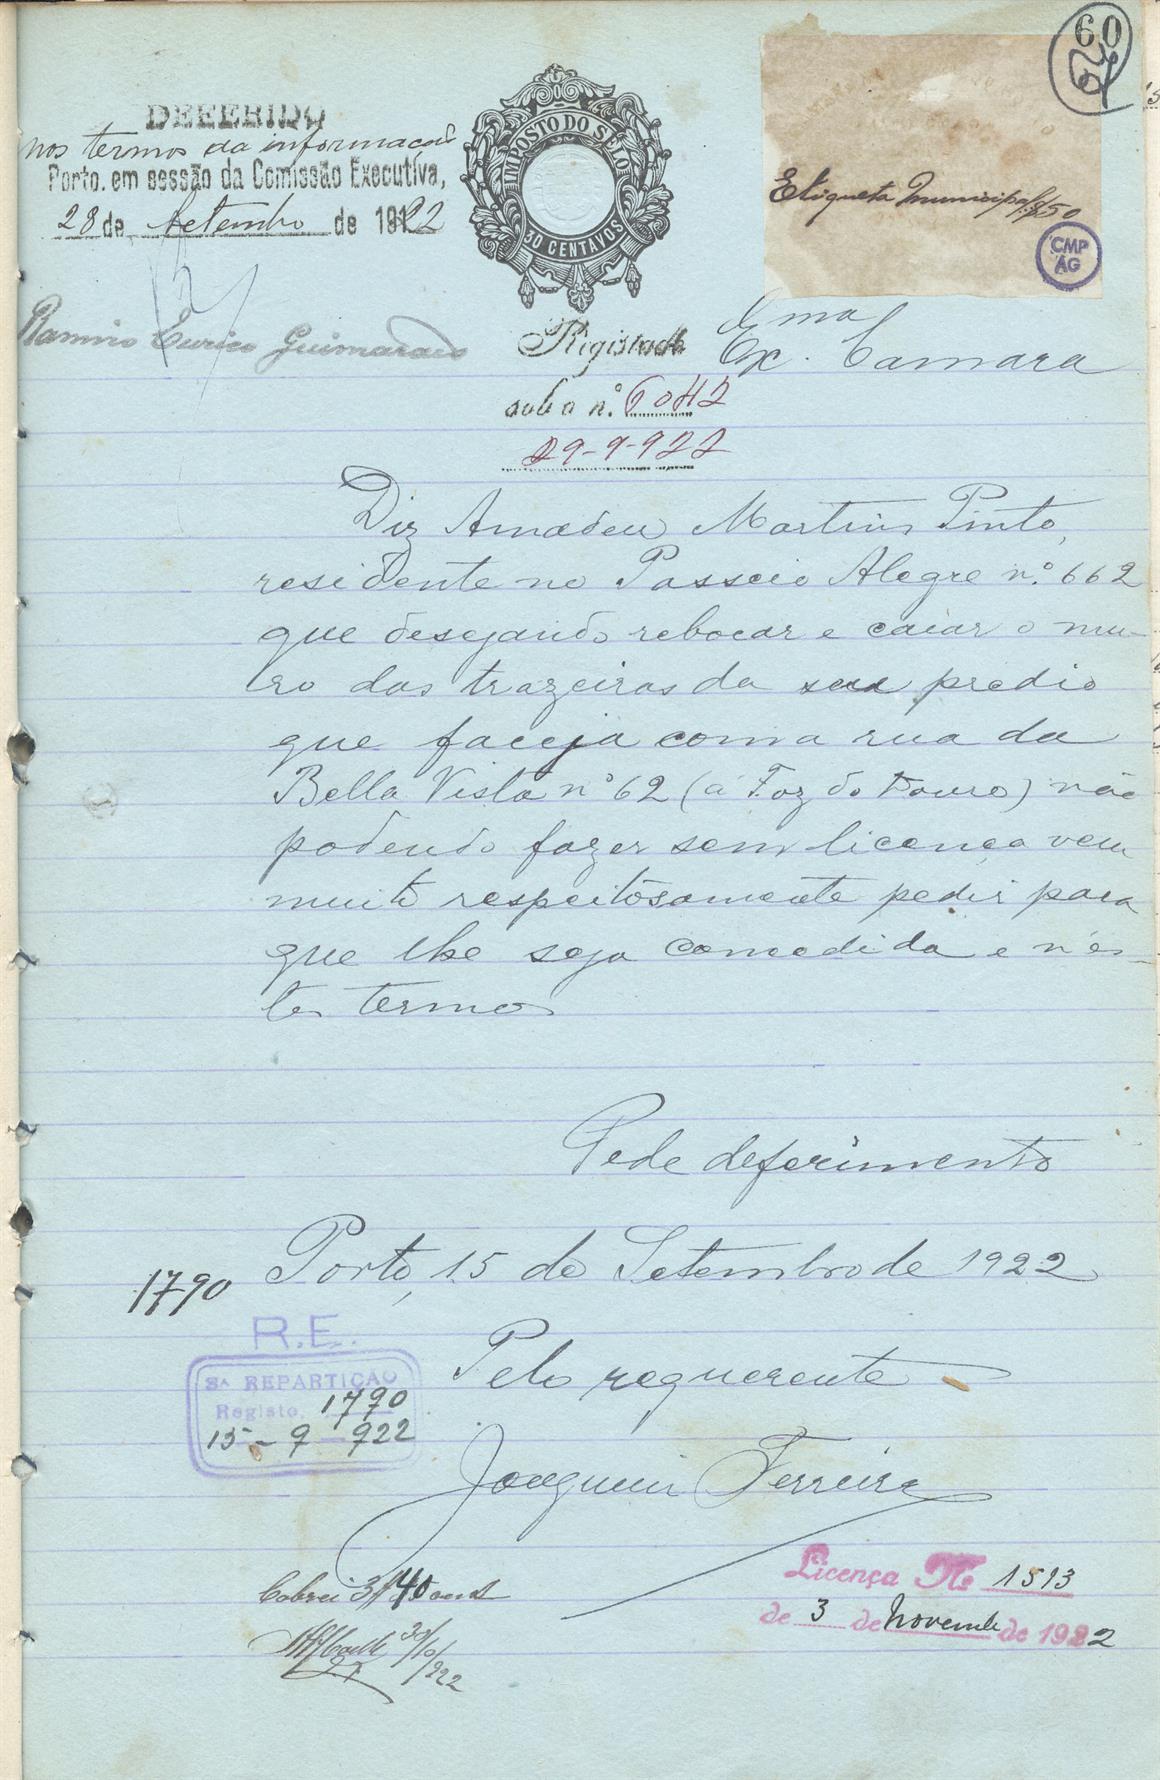 60
DEFERIDO
nos termos da informação
Porto. em sessão da Comissão Executiva,
28 de Setembro de 1922
Ramiro Eurico Guimarães
IMPOSTO DO SELO
30 CENTAVOS
Etiqueta Municipal
CMP
AG
Registada
sob o n.º 6042
29-9-922
Exma
Ex. Camara
Diz Amadeu Martins Pinto,
residente no Passeio Alegre n.º 662
que desejando rebocar e caiar o mu-
ro das trazeiras da seu predio
que faceja com a rua da
Bella Vista nº 62 (á Foz do Douro) não
podendo fazer sem licença vem
muito respeitosamente pedir para
que lhe seja comcedida e n'es-
tes termos
Pede deferimento
Porto, 15 de Setembro de 1922
1790
R.E.
3ª REPARTIÇÃO
Registo, 1790
15-9-922
Pelo requerente
Joaquim Ferreira
Cobrei 3$40
30/10/922
Licença No 1513
de 3 de Novembro de 1922